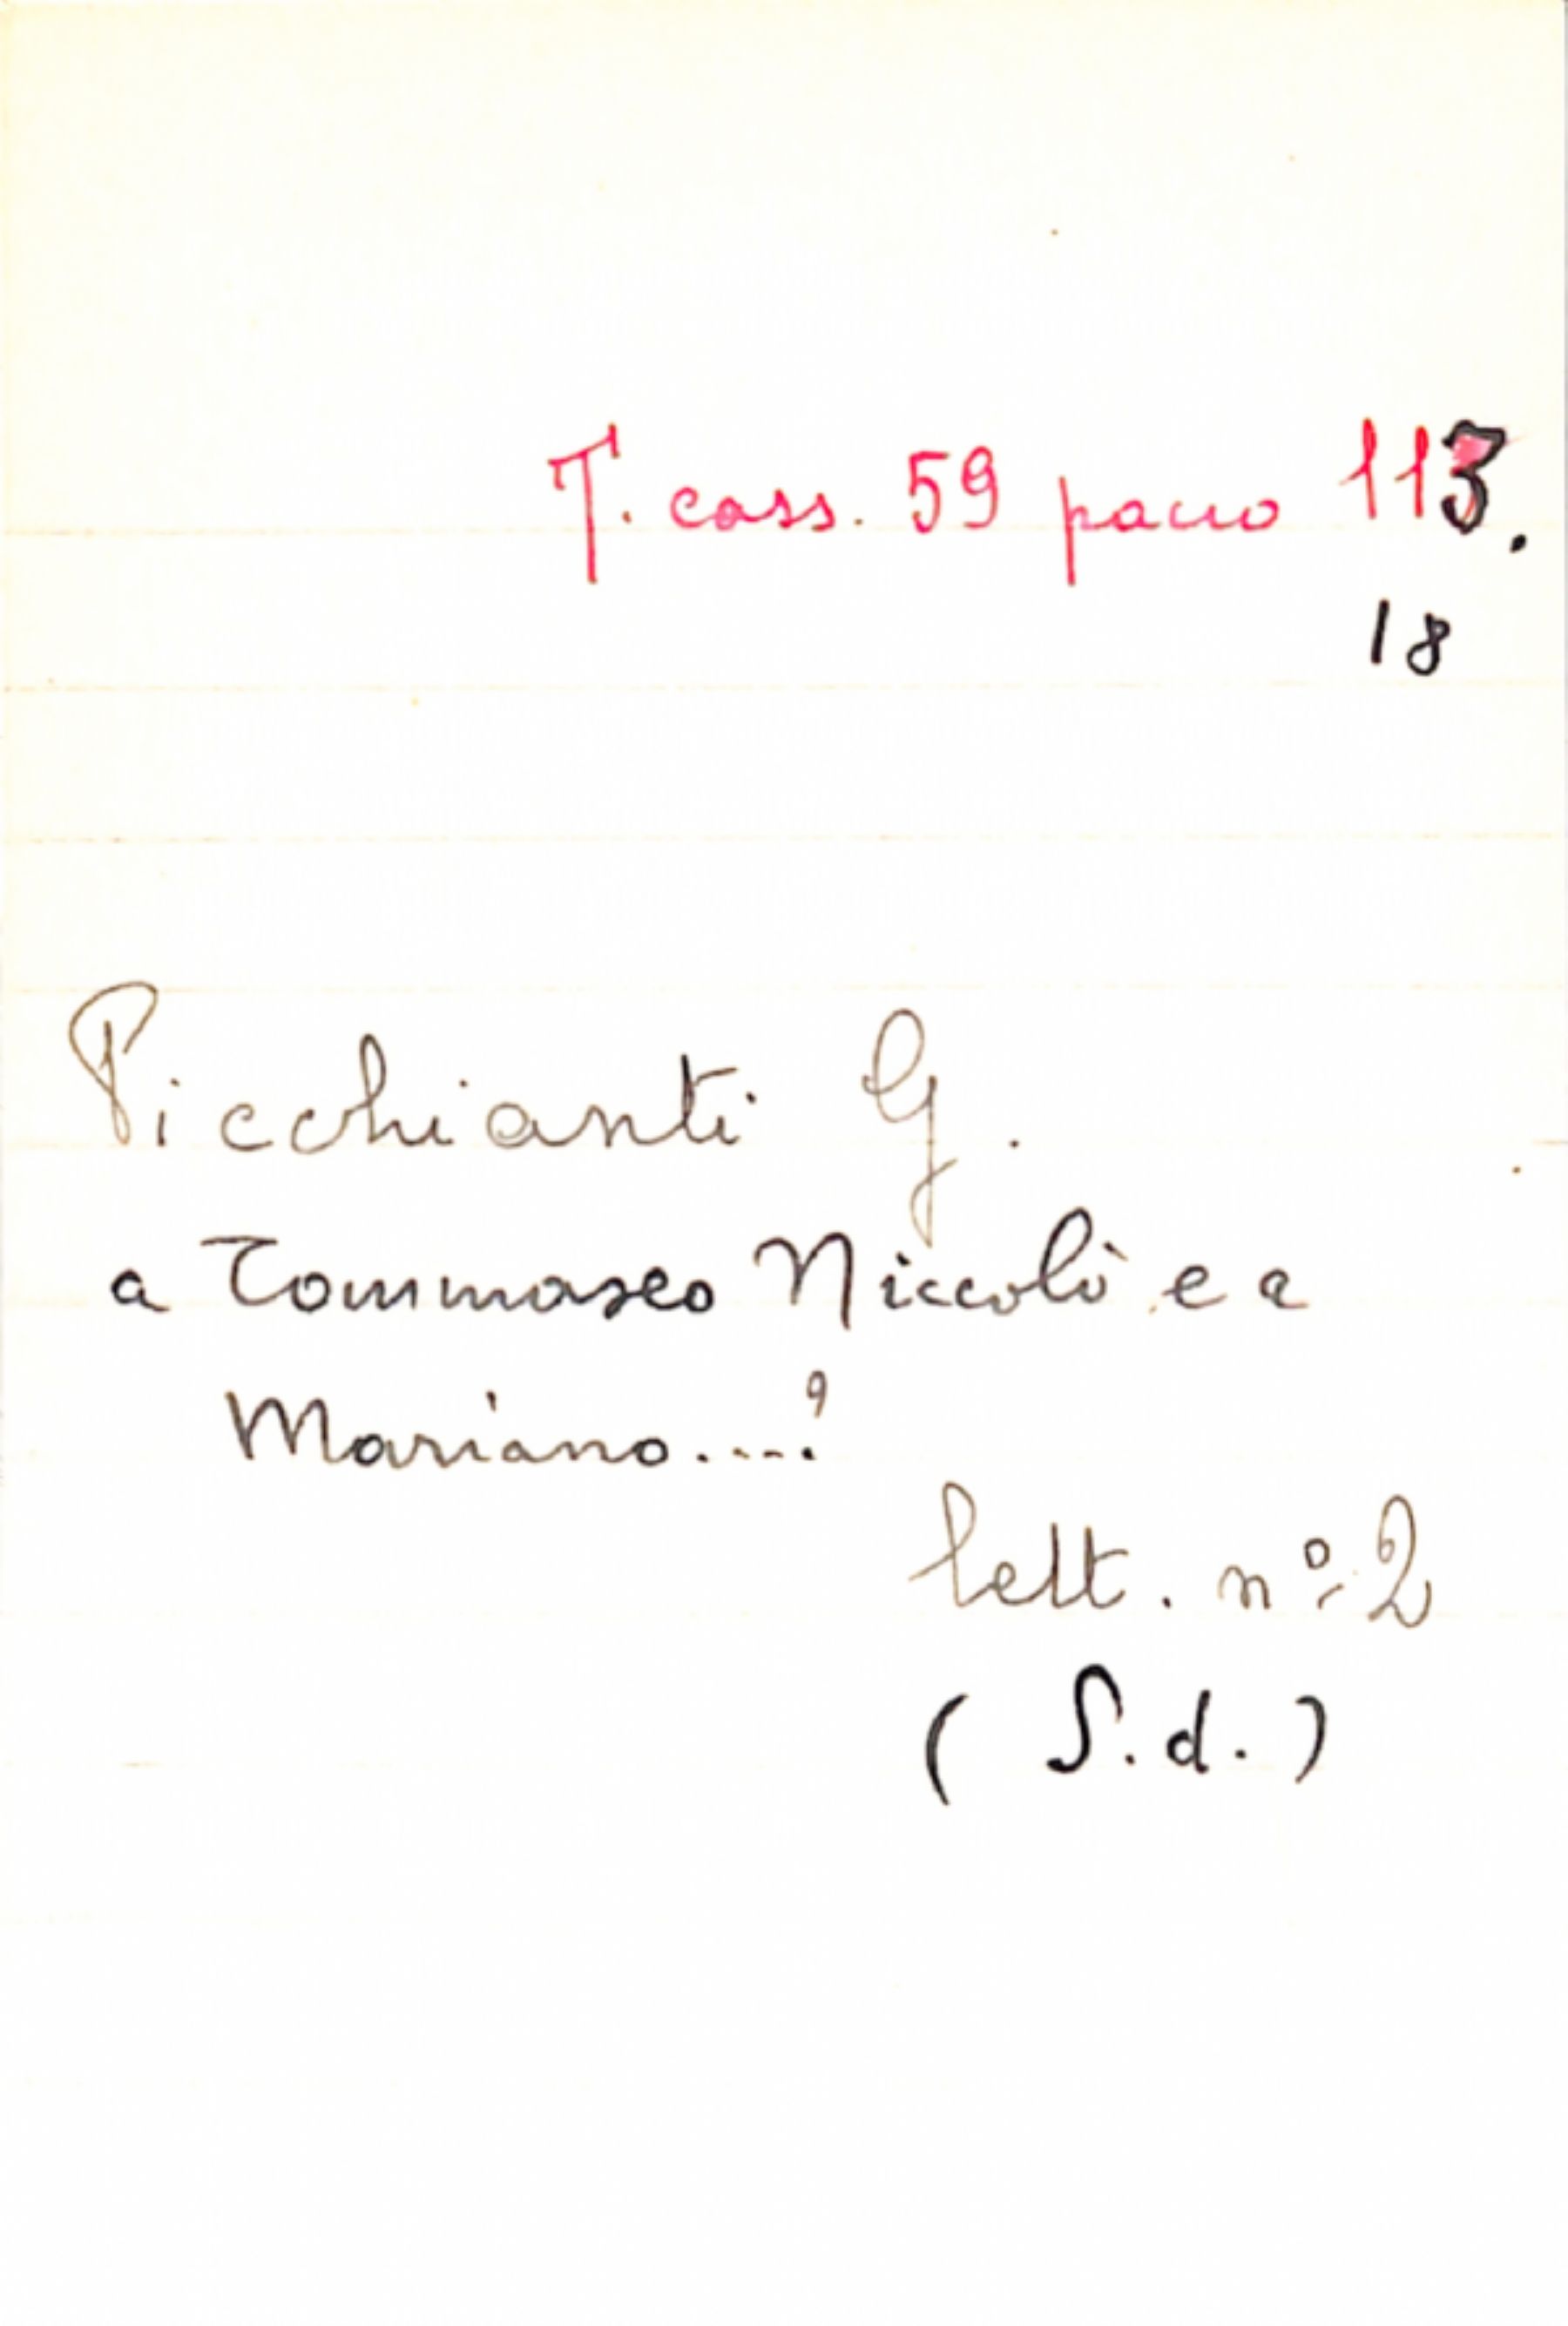 T. cass. 59 pacco 113.
18
Picchianti G.
a Tommaseo Niccolò e a
Mariano....?
lett. nº 2
(S.d.)